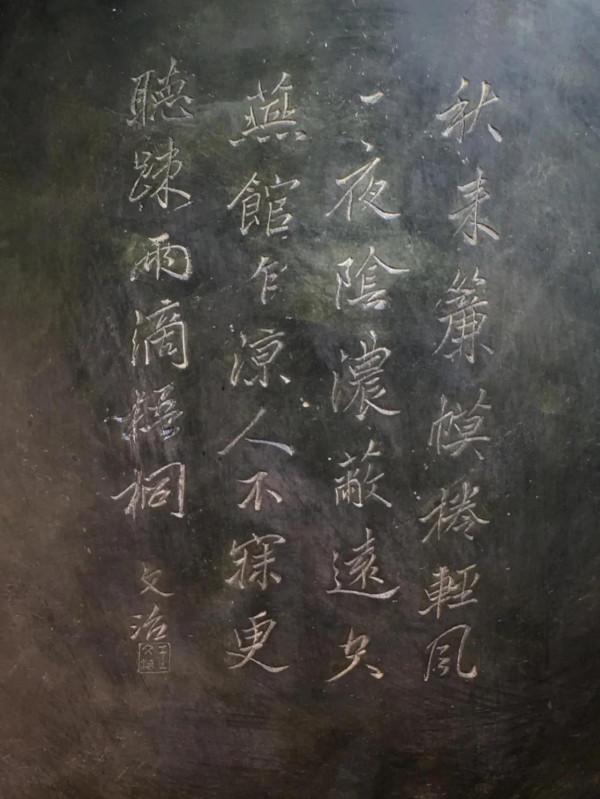 秋来簾幙捲輕風
一夜陰濃蔽遠空
燕館乍涼人不寐更
聽踈雨滴梧桐
文治